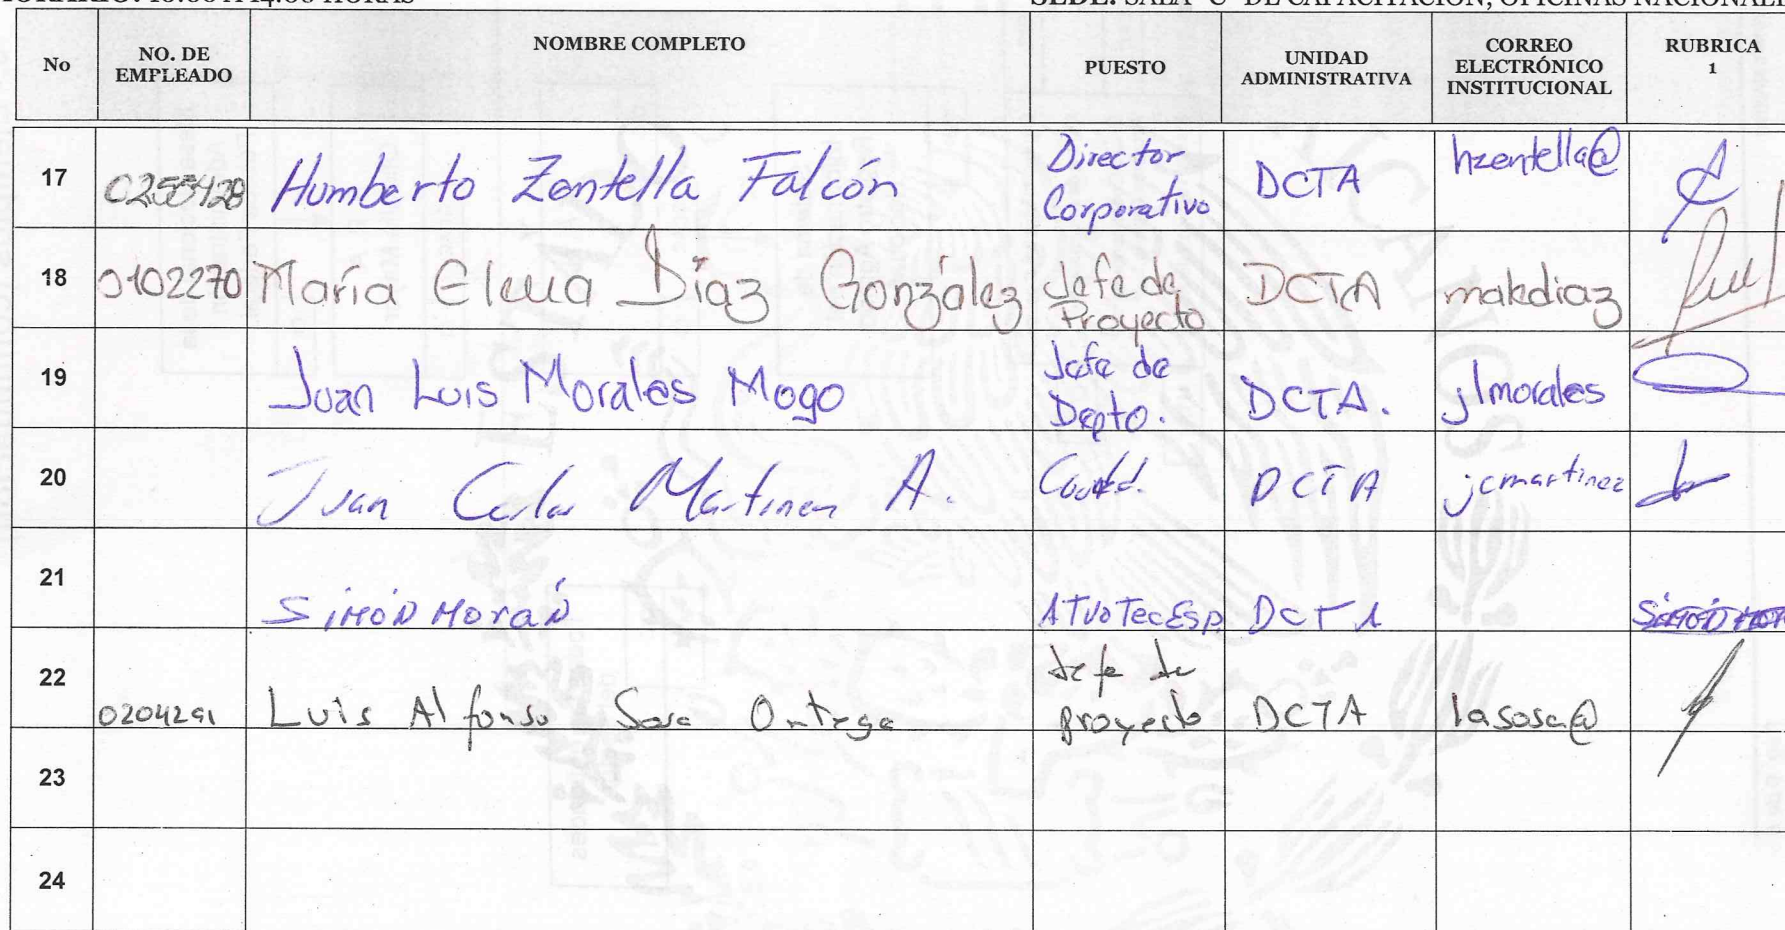 HORARIO: 10:00 A 14:00 HORAS SEDE: SALA "C" DE CAPACITACIÓN, OFICINAS NACIONALE
No NO. DE EMPLEADO NOMBRE COMPLETO PUESTO UNIDAD ADMINISTRATIVA CORREO ELECTRÓNICO INSTITUCIONAL RUBRICA 1
17 Humberto Zentella Falcón Director Corporativo DCTA hzentella@
18 0102270 María Elena Díaz González Jefe de Proyecto DCTA makdiaz
19 Juan Luis Morales Mogo Jefe de Depto. DCTA. jlmorales
20 Juan Carlos Martinez A. DCTA jcmartinez
21 Simón Morán ATVOTecEsp. DCTA Simón
22 0204291 Luis Alfonso Sosa Ortega Jefe de proyecto DCTA lasosa@
23
24